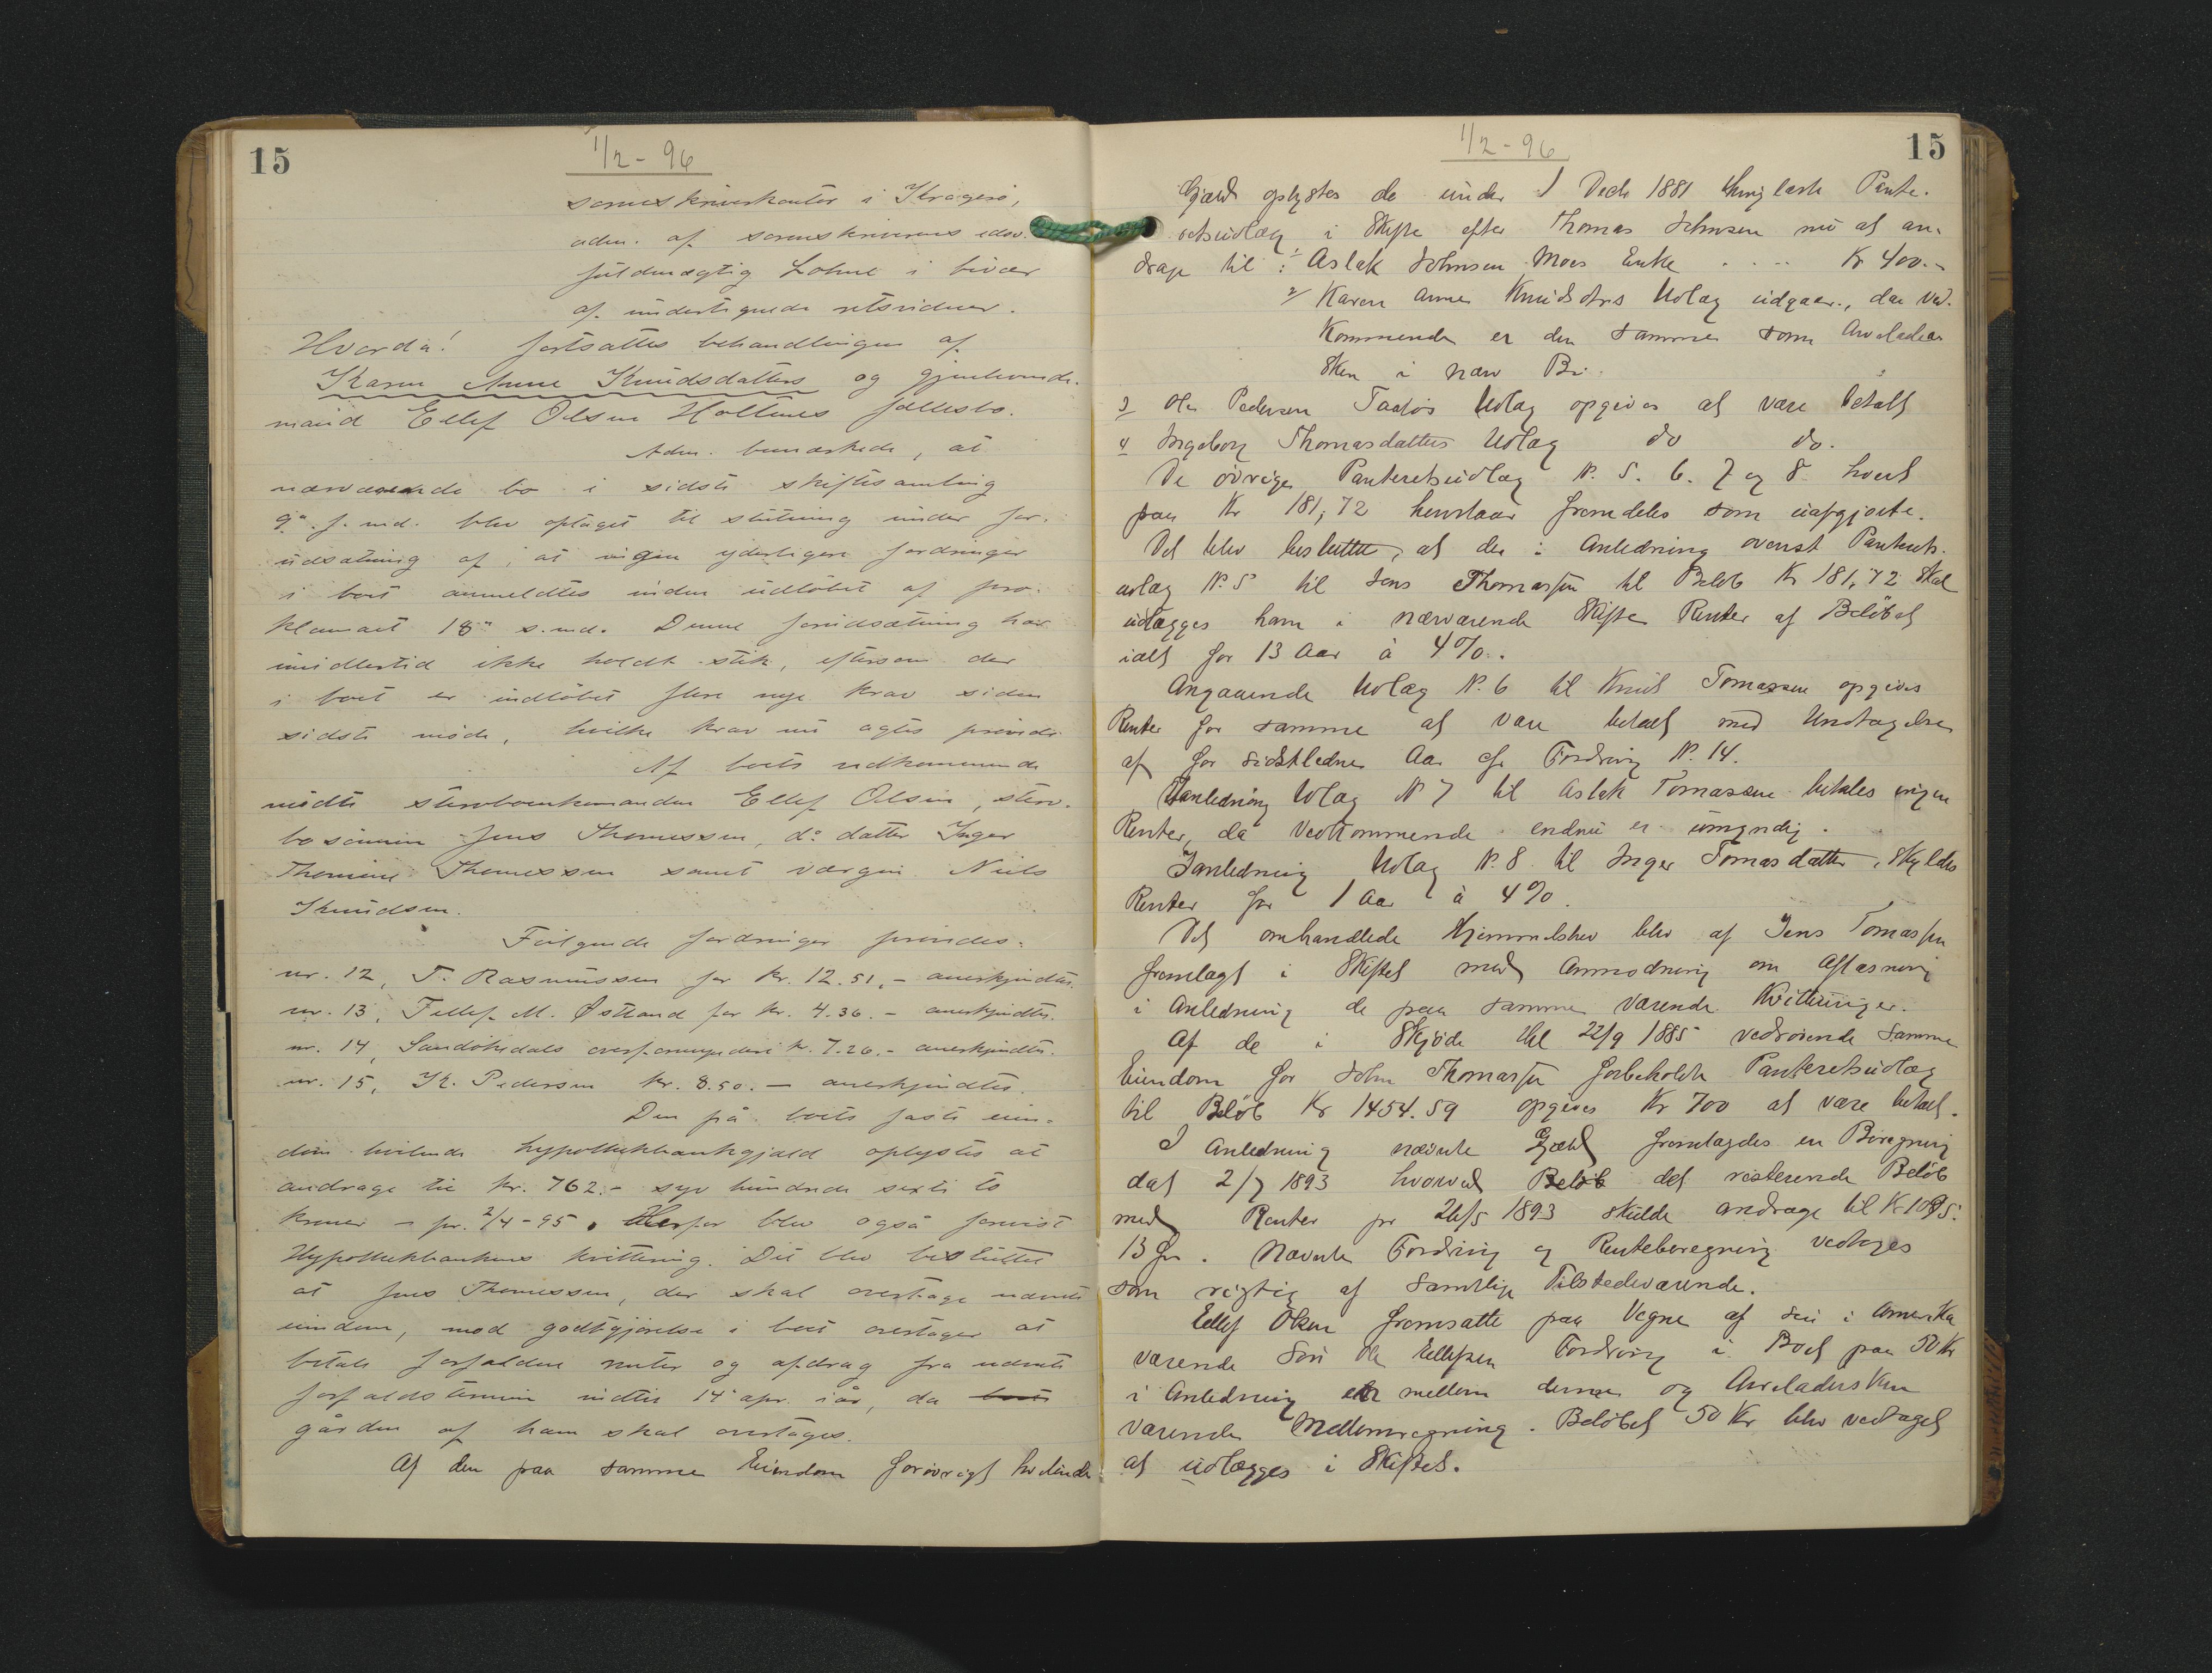 15
1/2 - 96
sorenskriverkontor i Kragerø,
adm. af sorenskriverens edsv.
fuldmægtig Lohne i bivær
af undertegnede retsvidner.
Hvorda! fortsattes behandlingen af
Karen Anne Knudsdatters og gjenlevende
mand Ellef Olsen Holtenes fællesbo.
Adm. bemærkede, at
nærværende bo i sidste skiftesamling
9de f. md. blev optaget til slutning under for-
udsætning af, at ingen yderligere fordringer
i boet anmeldtes inden udløbet af pro-
klamaet 18de s. md. Denne forudsætning har
imidlertid ikke holdt stik, eftersom der
i boet er indløbet flere nye krav siden
sidste møde, hvilke krav nu agtes prøvede.
Af boets vedkommende
mødte stervboenkemanden Ellef Olsen, sterv-
bosønnen Jens Thomessen, do datter Inger
Thomine Thomessen samt værgen Niels
Knudsen.
Følgende fordringer prøvedes:
nr. 12, T. Rasmussen for kr. 12.51. - anerkjendtes.
nr. 13, Tellef M. Østland for kr. 4.36. - anerkjendtes.
nr. 14, Sandøkedals overformynderi kr. 7.26. - anerkjendtes.
nr. 15, K. Pedersen kr. 8.50. - anerkjendtes.
Den på boets faste eien-
dom hvilende hypothekbankgjæld oplystes at
andrage til kr. 762.- syv hundrede sexti to
kroner - pr. 2/4-95. Herfor blev også forevist
Hypothekbankens kvittering. Det blev besluttet
at Jens Thomessen, der skal overtage nævnte
eiendom, mod godtgjørelse i boet overtager at
betale forfaldne renter og afdrag fra nævnte
forfaldstermin indtil 14de apr. iår, da boets
gården af ham skal overtages.
Af den paa samme Eiendom forøvrigt hvilende
15
1/2 - 96
Gjæld oplystes de under 1 Decb 1881 thinglæste Pante-
retsudlæg i Skifte efter Thomas Johnsen nu at an-
drage til: 1/ Aslak Johnsen Moes Enke . . . . Kr 400.-
2/ Karen Anne Knudsdtrs Udlæg udgaar, da Ved-
kommende er den samme som Arveladers-
ken i nærv Bo.
3 Ole Pedersen Taatøs Udlæg opgives at være betalt
4 Ingeborg Thomasdatters Udlæg do do.
De øvrige Panteretsudlæg N. 5. 6. 7 og 8 hvert
paa Kr 181,72 henstaar fremdeles som uafgjorte.
Det blev besluttet, at der i Anledning ovenst Panterets-
udlæg N. 5 til Jens Thomassen til Beløb Kr 181,72 skal
udlægges ham i nærværende Skifte Renter af Beløbet
ialt for 13 Aar à 4%.
Angaaende Udlæg N. 6 til Knud Tomassen opgives
Renter for samme at være betalt med Undtagelse
af for sidstledne Aar cfr Fordring N. 14.
I Anledning Udlæg N 7 til Aslak Tomassen betales ingen
Renter, da Vedkommende endnu er umyndig.
I Anledning Udlæg N. 8 til Inger Tomasdatter, skyldes
Renter for 1 Aar à 4%.
Det omhandlede Hjemmelsbrev blev af Jens Tomassen
fremlagt i Skiftet med Anmodning om Aflæsning
i Anledning de paa samme værende Kvitteringer.
Af de i Skjøde thl 22/9 1885 vedrørende samme
Eiendom for John Thomassen forbeholdte Panteretsudlæg
til Beløb Kr 1454.59 opgives Kr 700 at være betalt.
I Anledning nævnte Gjæld fremlagdes en Beregning
dat 2/7 1893 hvorved Beløb det resterende Beløb
med Renter pr 26/5 1893 skulde andrage til Kr 1095:
13 Øre. Nævnte Fordring og Renteberegning vedtoges
som rigtig af samtlige Tilstedeværende.
Ellef Olsen fremsatte paa Vegne af sin i Amerika
værende Søn Ole Ellefsen Fordring i Boet paa 50 Kr
i Anledning en mellem denne og Arveladersken
værende Mellemregning. Beløbet 50 Kr blev vedtaget
at udlægges i Skiftet.